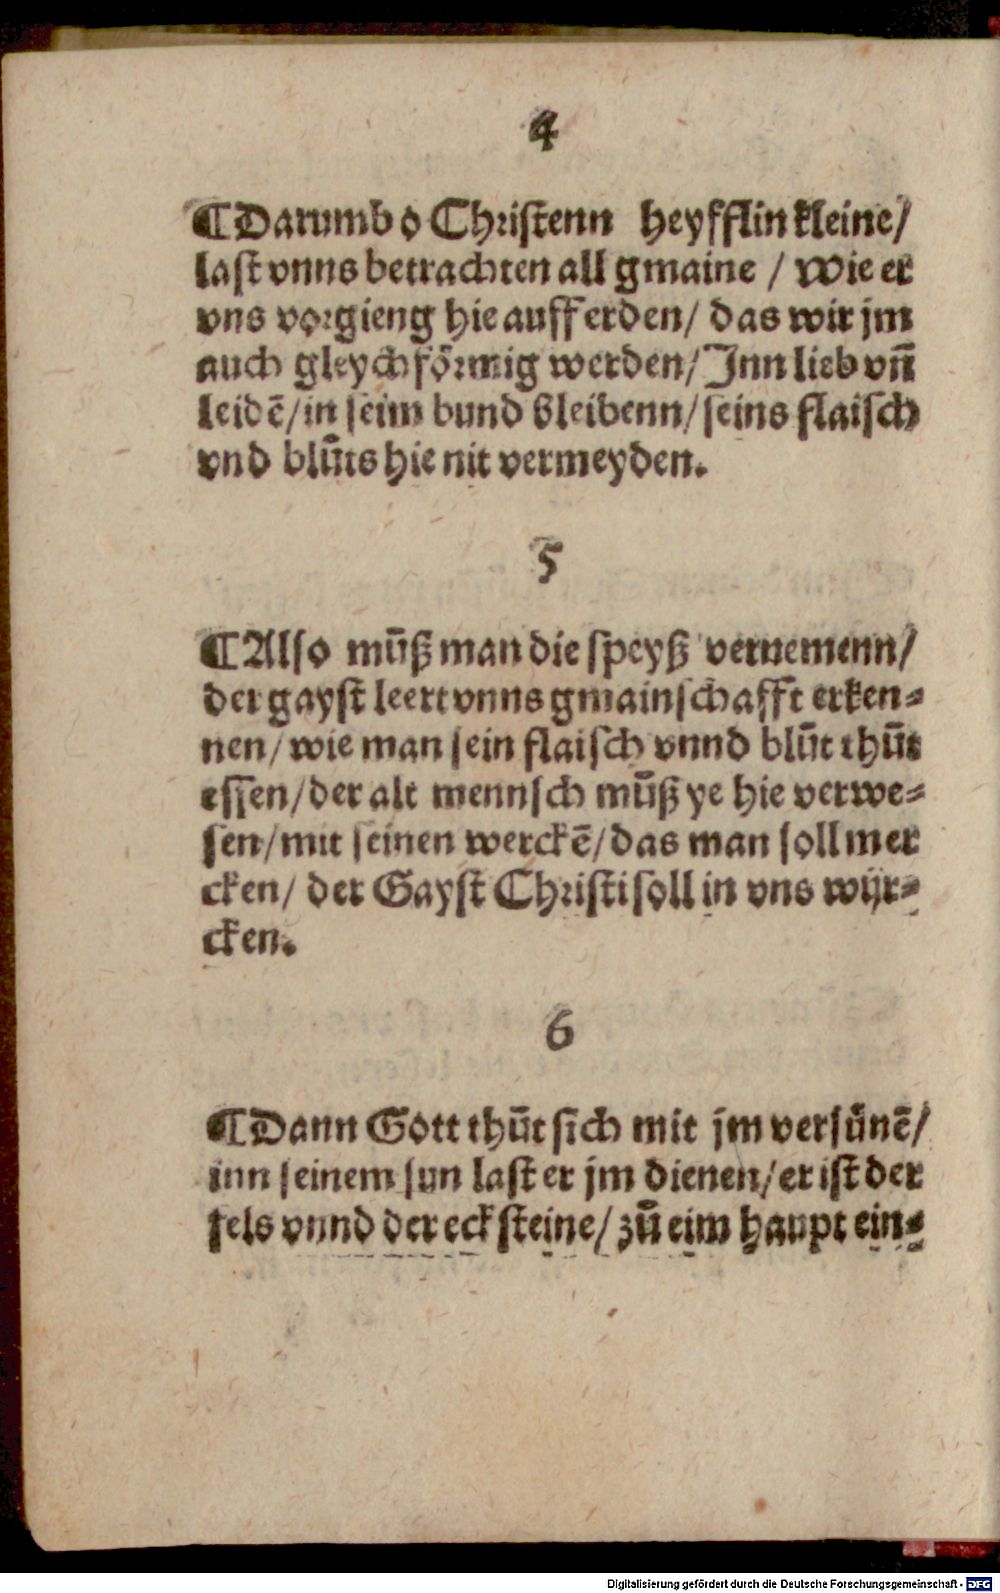 4
¶Darumb o Christenn heyfflin kleine/
last vnns betrachten all gmaine / wie er
vns vorgieng hie auff erden/ das wir jm
auch gleychförmig werden/ Jnn lieb vn̄
leidē/in seim bund bleibenn/seins flaisch
vnd blůts hie nit vermeyden.
5
¶Also můß man die speyß vernemenn/
der gayst leert vnns gmainschafft erken⸗
nen/wie man sein flaisch vnnd blůt thůt
essen/der alt mennsch můß ye hie verwe⸗
sen/mit seinen werckē/das man soll mer
cken/ der Gayst Christi soll in vns wijr⸗
cken.
6
¶Dann Gott thůt sich mit jm versünē/
inn seinem sun last er jm dienen/er ist der
fels vnnd der eck steine/zů eim haupt ein⸗
Digitalisierung gefördert durch die Deutsche Forschungsgemeinschaft - DFG